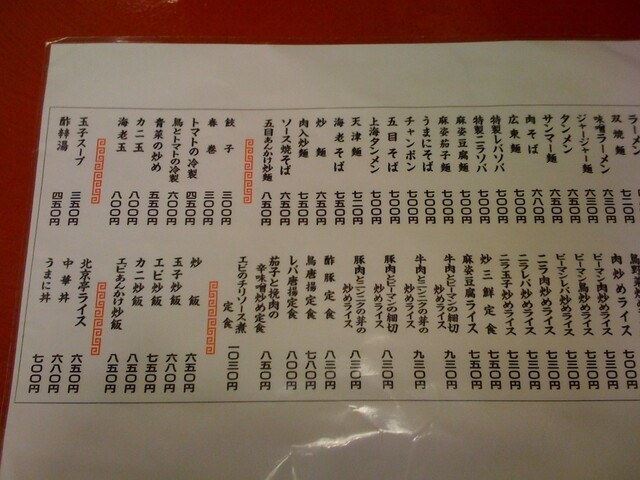 ラーメン
双焼麺 七二〇円
味噌ラーメン 六三〇円
ジャージャー麺 六三〇円
タンメン 六五〇円
サンマー麺 六五〇円
肉そば 六八〇円
広東麺 七〇〇円
特製レバソバ 七〇〇円
特製ニラソバ 七〇〇円
麻姿豆腐麺 七〇〇円
麻姿茄子麺 七〇〇円
うまにそば 七〇〇円
チャンポン 七〇〇円
五目そば 七〇〇円
上海タンメン 七〇〇円
天津麺 七二〇円
海老そば 七五〇円
炒麺 六五〇円
肉入炒麺 七五〇円
ソース焼そば 六五〇円
五目あんかけ炒麺 八五〇円
餃子 三〇〇円
春巻 三〇〇円
トマトの冷製 四五〇円
鳥とトマトの冷製 六〇〇円
青菜の炒め 五五〇円
カニ玉 八〇〇円
海老玉 八〇〇円
玉子スープ 三五〇円
酢辣湯 四五〇円
肉炒めライス 七〇〇円
ピーマン肉炒めライス 七三〇円
ピーマン鳥炒めライス 七三〇円
ピーマンレバ炒めライス 七三〇円
ニラ肉炒めライス 七三〇円
ニラレバ炒めライス 七三〇円
ニラ玉子炒めライス 七三〇円
炒三鮮定食 七五〇円
麻姿豆腐ライス 七五〇円
牛肉とピーマンの細切炒めライス 九三〇円
牛肉とニンニクの芽の炒めライス 九三〇円
豚肉とピーマンの細切炒めライス 八三〇円
豚肉とニンニクの芽の炒めライス 八三〇円
酢豚定食 八三〇円
鳥唐揚定食 七八〇円
レバ唐揚定食 八〇〇円
茄子と挽肉の辛味噌炒め定食 八五〇円
エビのチリソース煮定食 一〇三〇円
炒飯 六五〇円
玉子炒飯 六八〇円
エビ炒飯 七五〇円
カニ炒飯 七五〇円
エビあんかけ炒飯 八五〇円
北京亭ライス 六五〇円
中華丼 六八〇円
うまに丼 七〇〇円